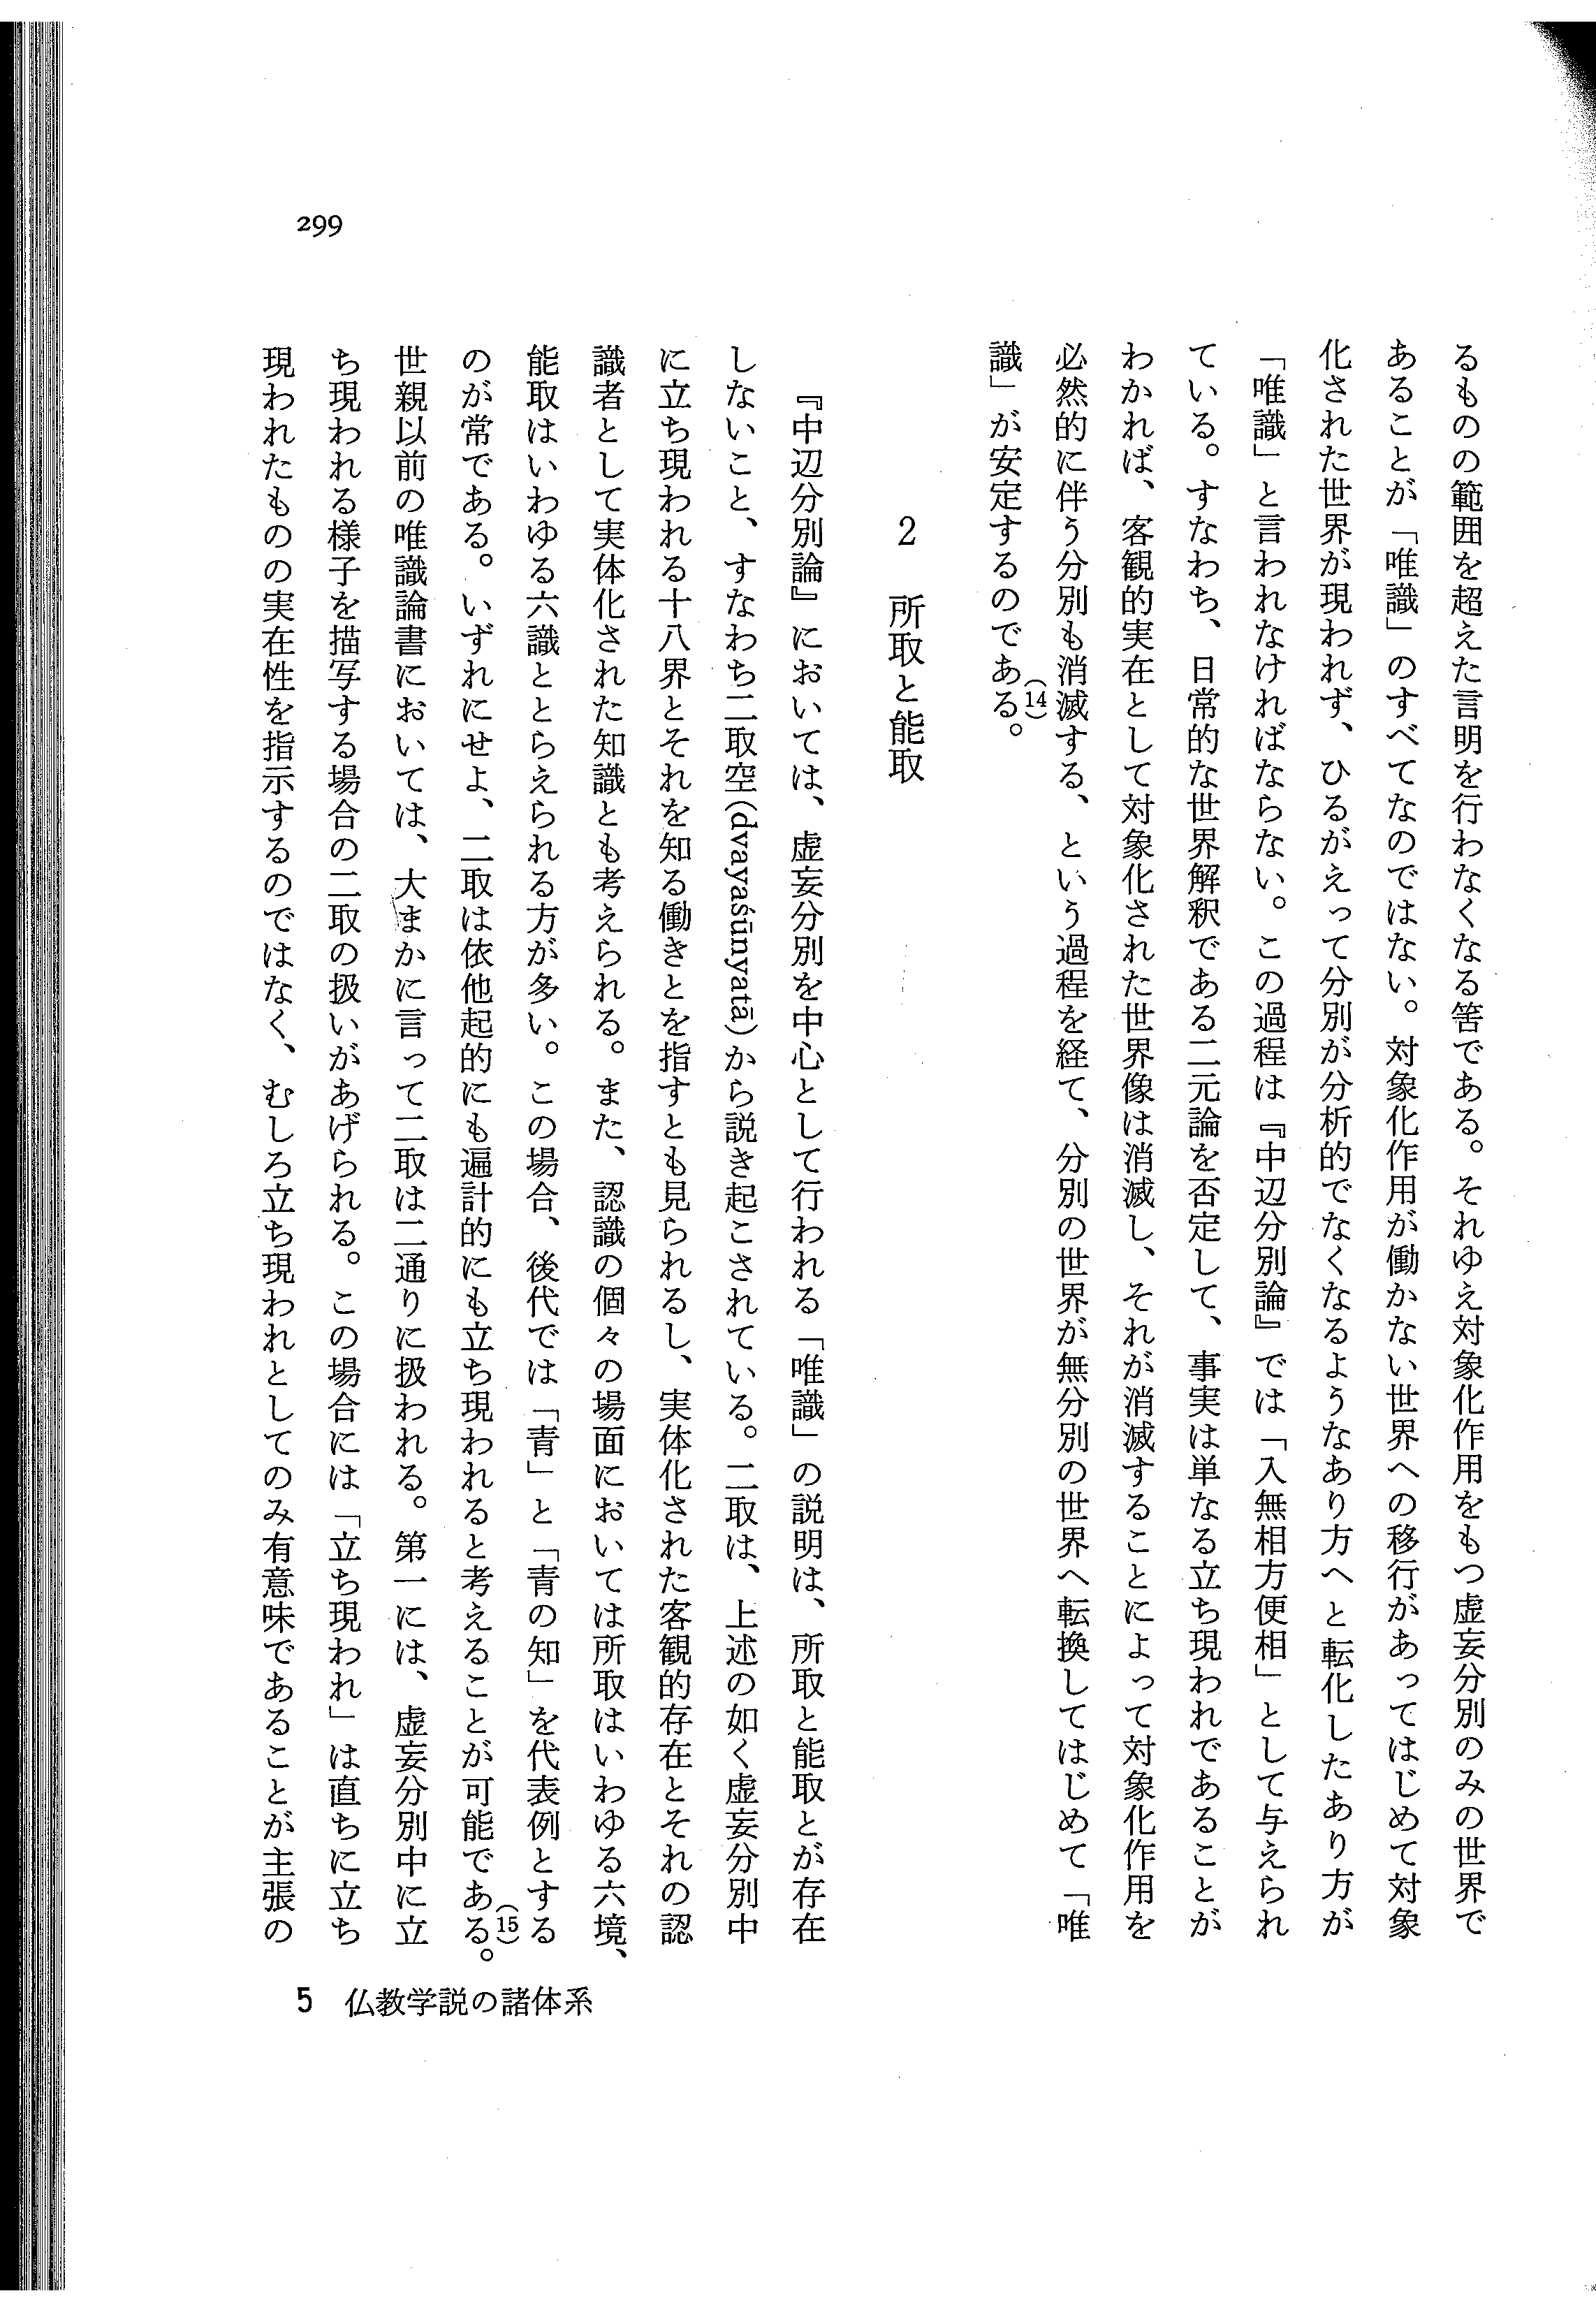 るものの範囲を超えた言明を行わなくなる筈である。それゆえ対象化作用をもつ虚妄分別のみの世界で
あることが「唯識」のすべてなのではない。対象化作用が働かない世界への移行があってはじめて対象
化された世界が現われず、ひるがえって分別が分析的でなくなるようなあり方へと転化したあり方が
「唯識」と言われなければならない。この過程は『中辺分別論』では「入無相方便相」として与えられ
ている。すなわち、日常的な世界解釈である二元論を否定して、事実は単なる立ち現われであることが
わかれば、客観的実在として対象化された世界像は消滅し、それが消滅することによって対象化作用を
必然的に伴う分別も消滅する、という過程を経て、分別の世界が無分別の世界へ転換してはじめて「唯
識」が安定するのである。(14)
2 所取と能取
『中辺分別論』においては、虚妄分別を中心として行われる「唯識」の説明は、所取と能取とが存在
しないこと、すなわち二取空(dvayaśūnyatā)から説き起こされている。二取は、上述の如く虚妄分別中
に立ち現われる十八界とそれを知る働きとを指すとも見られるし、実体化された客観的存在とそれの認
識者として実体化された知識とも考えられる。また、認識の個々の場面においては所取はいわゆる六境、
能取はいわゆる六識ととらえられる方が多い。この場合、後代では「青」と「青の知」を代表例とする
のが常である。いずれにせよ、二取は依他起的にも遍計的にも立ち現われると考えることが可能である。(15)
世親以前の唯識論書においては、大まかに言って二取は二通りに扱われる。第一には、虚妄分別中に立
ち現われる様子を描写する場合の二取の扱いがあげられる。この場合には「立ち現われ」は直ちに立ち
現われたものの実在性を指示するのではなく、むしろ立ち現われとしてのみ有意味であることが主張の
299
5 仏教学説の諸体系